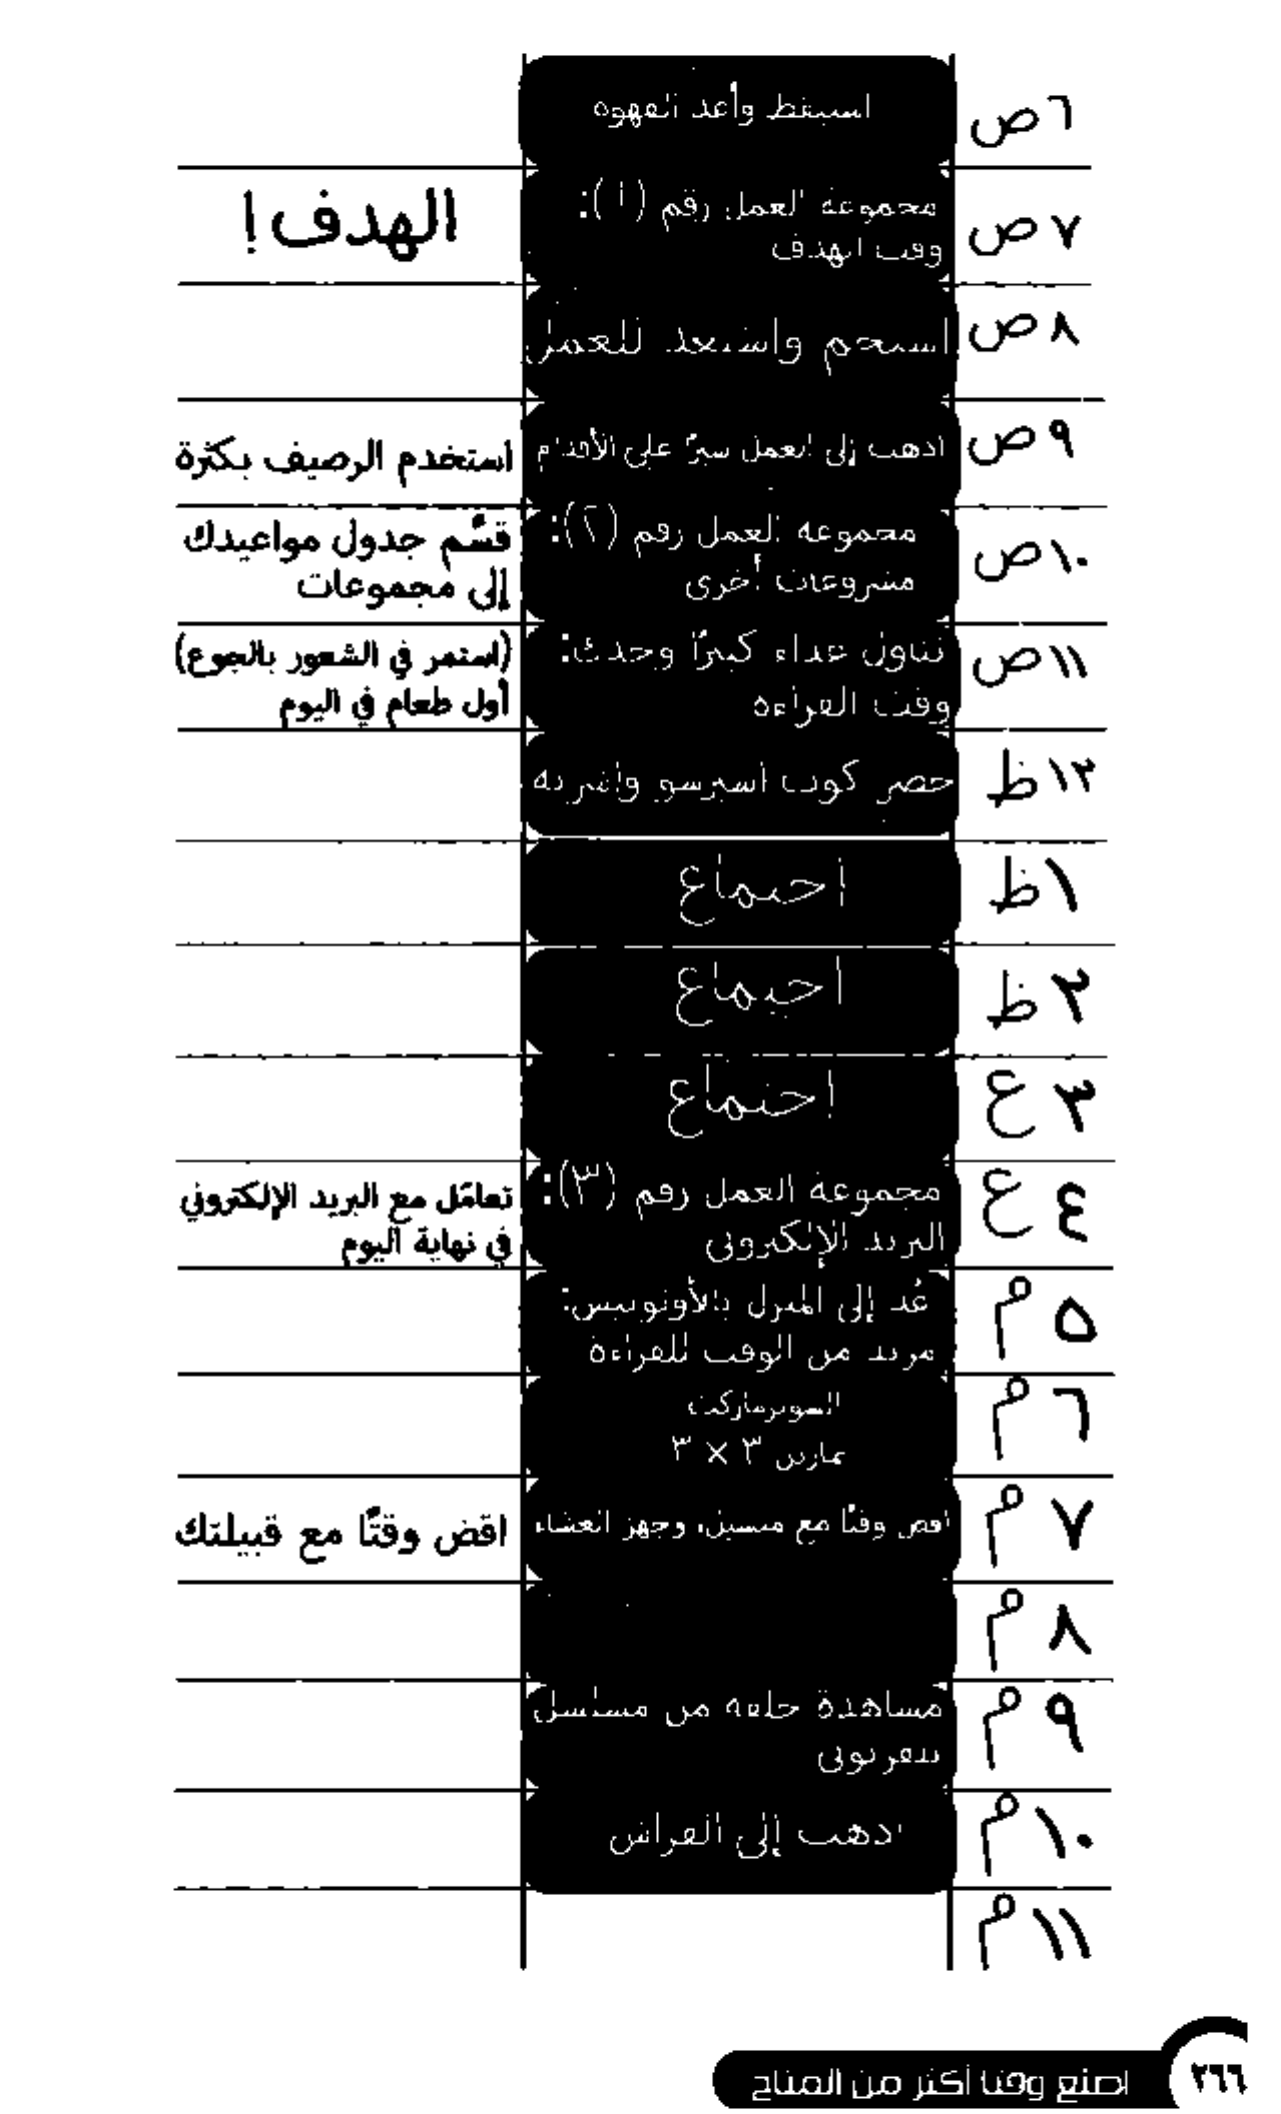 ٦ ص
استيقظ وأعد القهوة
٧ ص
مجموعة العمل رقم (١):
وقت الهدف
الهدف!
٨ ص
استحم واستعد للعمل
٩ ص
اذهب إلى العمل سيرًا على الأقدام
استخدم الرصيف بكثرة
١٠ ص
مجموعة العمل رقم (٢):
مشروعات أخرى
قسِّم جدول مواعيدك
إلى مجموعات
١١ ص
تناول غداء كبيرًا وحدك:
وقت القراءة
(استمر في الشعور بالجوع)
أول طعام في اليوم
١٢ ظ
حضر كوب اسبرسو واشربه
١ ظ
اجتماع
٢ ظ
اجتماع
٣ ع
اجتماع
٤ ع
مجموعة العمل رقم (٣):
البريد الإلكتروني
تعامَل مع البريد الإلكتروني
في نهاية اليوم
٥ م
عُد إلى المنزل بالأوتوبيس:
مزيد من الوقت للقراءة
٦ م
السوبرماركت
تمارين ٣ × ٣
٧ م
اقض وقتًا مع وجهز العشاء
اقض وقتًا مع قبيلتك
٨ م
٩ م
مشاهدة حلقة من مسلسل
تليفزيوني
١٠ م
اذهب إلى الفراش
١١ م
اصنع وقتا أكثر من المتاح
٢٦٦